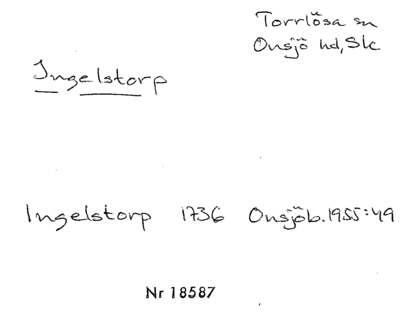 Torrlösa sn
Onsjö hd, Sk
Ingelstorp
Ingelstorp 1736 Onsjöb. 1955:49
Nr 18587